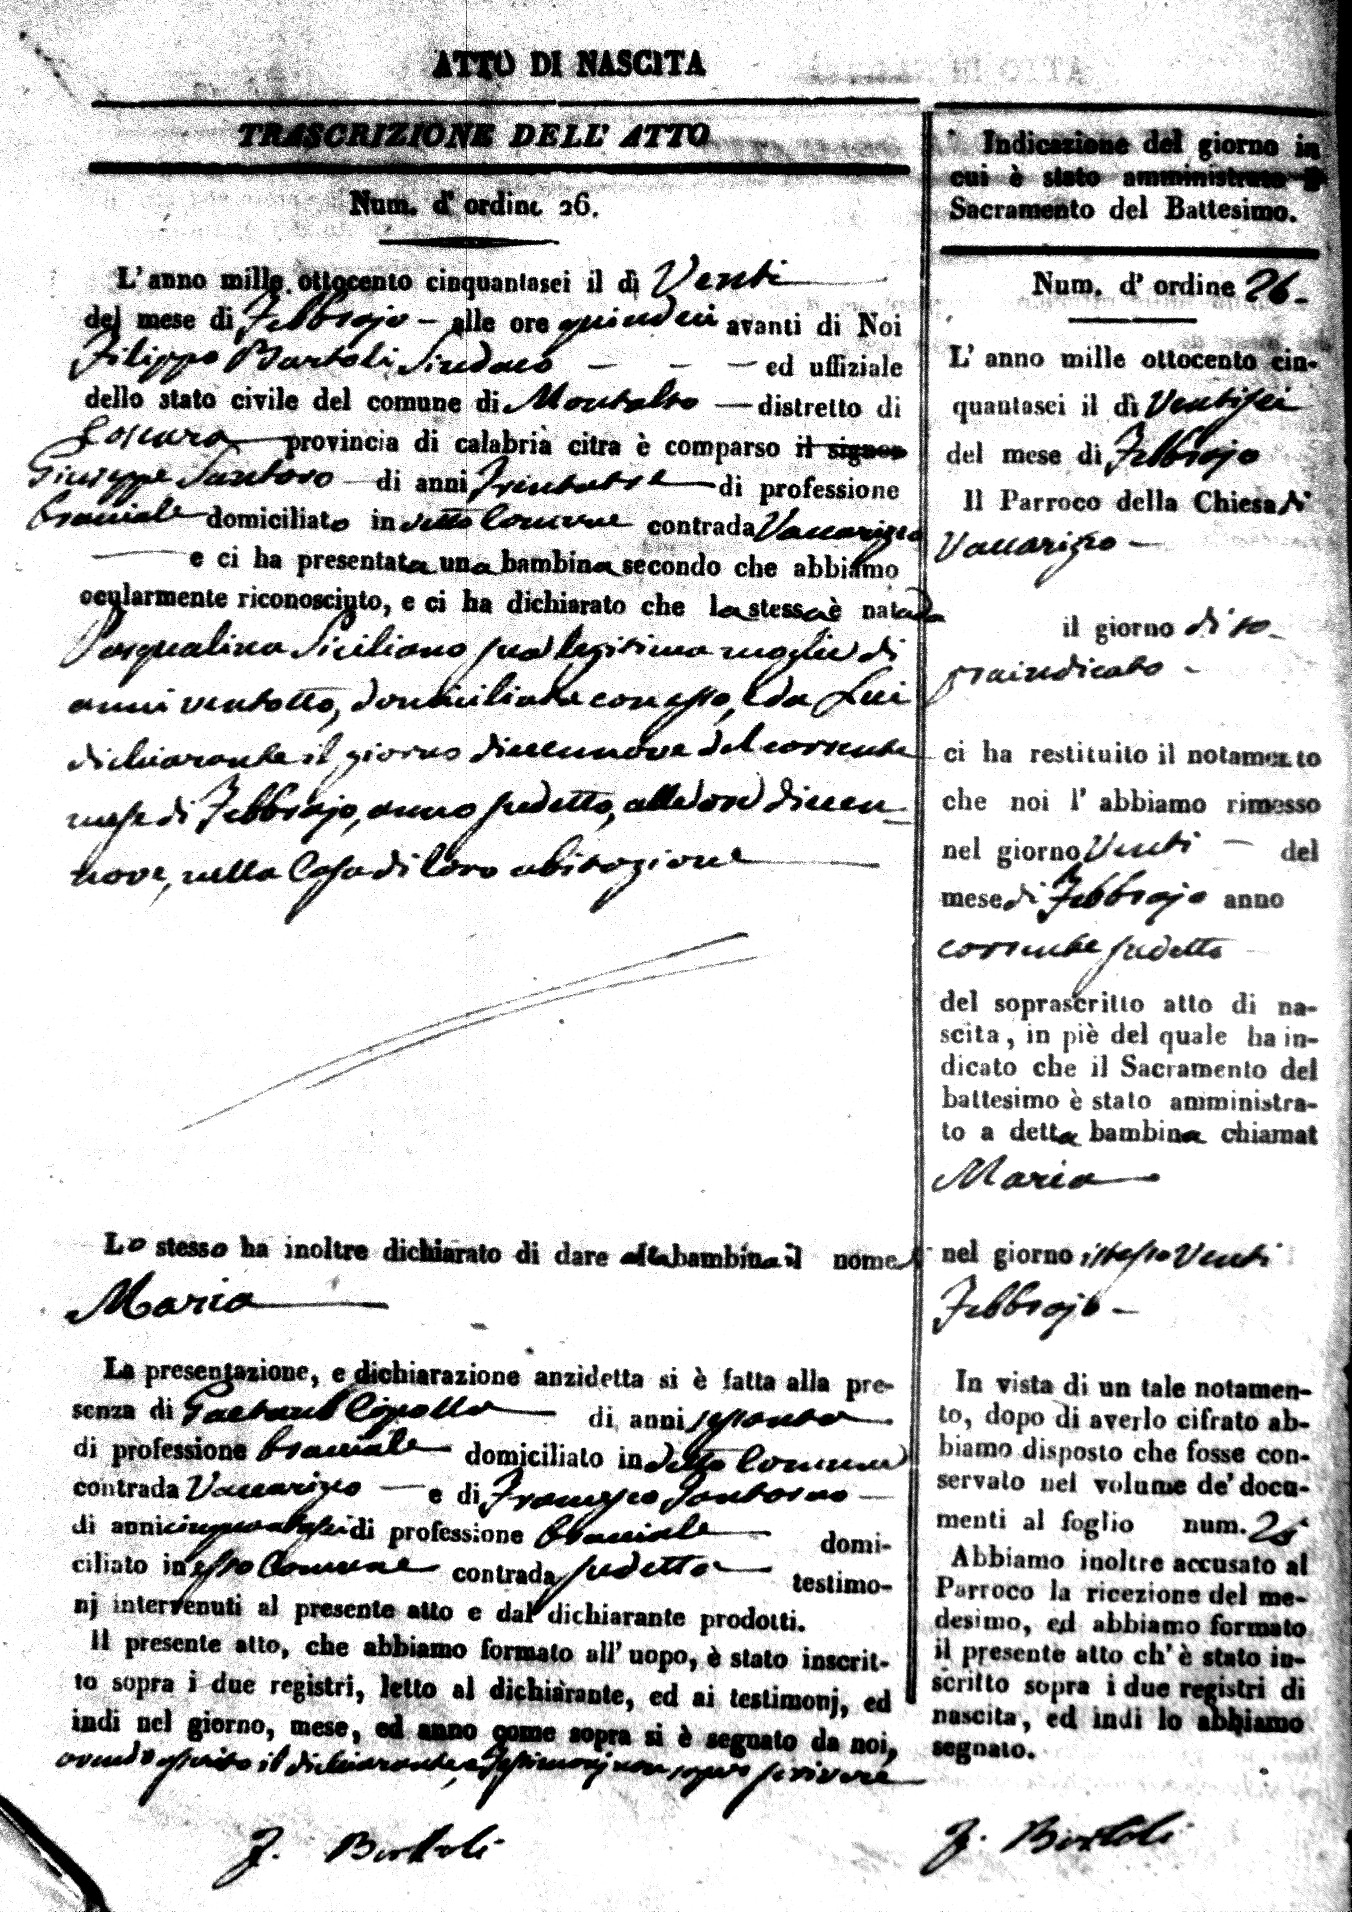 ATTO DI NASCITA
TRASCRIZIONE DELL' ATTO
Num. d' ordine 26.
L' anno mille ottocento cinquantasei il dì Venti
del mese di Febbrajo alle ore quindici avanti di Noi
Filippo Bartoli Sindaco ed uffiziale
dello stato civile del comune di Montalto distretto di
Cosenza provincia di calabria citra è comparso il signor
Giuseppe Santoro di anni Trentatre di professione
bracciale domiciliato in detto Comune contrada Vaccarizzo
e ci ha presentata una bambina secondo che abbiamo
ocularmente riconosciuto, e ci ha dichiarato che la stessa è nata da
Pasqualina Siciliano sua legitima moglie di
anni ventotto, domiciliata con esso, e da Lui
dichiarante il giorno diecennove del corrente
mese di Febbrajo, anno sudetto, alle ore diecen-
nove, nella Casa di loro abitazione
Lo stesso ha inoltre dichiarato di dare alla bambina il nome di
Maria
La presentazione, e dichiarazione anzidetta si è fatta alla pre-
senza di Gaetano Cipolla di anni sessanta
di professione bracciale domiciliato in detto Comune
contrada Vaccarizzo e di Francesco Santoro
di anni cinquantasei di professione bracciale domi-
ciliato in esso Comune contrada sudetta testimo-
nj intervenuti al presente atto e dal dichiarante prodotti.
Il presente atto, che abbiamo formato all' uopo, è stato inscrit-
to sopra i due registri, letto al dichiarante, ed ai testimonj, ed
indi nel giorno, mese, ed anno come sopra si è segnato da noi,
avendo asserito il dichiarante, e testimonj non saper scrivere
F. Bartoli
Indicazione del giorno in
cui è stato amministrato il
Sacramento del Battesimo.
Num. d' ordine 26
L' anno mille ottocento cin-
quantasei il dì Ventisei
del mese di Febbrajo
Il Parroco della Chiesa di
Vaccarizzo
il giorno di so-
praindicato
ci ha restituito il notamento
che noi l' abbiamo rimesso
nel giorno Venti del
mese di Febbrajo anno
corrente sudetto
del soprascritto atto di na-
scita, in piè del quale ha in-
dicato che il Sacramento del
battesimo è stato amministra-
to a detta bambina chiamat
Maria
nel giorno istesso Venti
Febbrajo
In vista di un tale notamen-
to, dopo di averlo cifrato ab-
biamo disposto che fosse con-
servato nel volume de' docu-
menti al foglio num. 25
Abbiamo inoltre accusato al
Parroco la ricezione del me-
desimo, ed abbiamo formato
il presente atto ch' è stato in-
scritto sopra i due registri di
nascita, ed indi lo abbiamo
segnato.
F. Bartoli